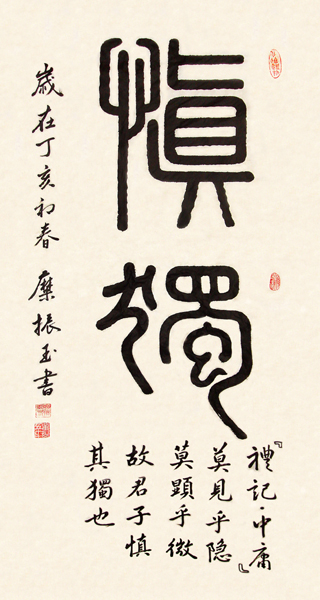 慎
獨
『禮記·中庸』
莫見乎隐
莫顯乎微
故君子慎
其獨也
歲在丁亥初春 糜振玉書